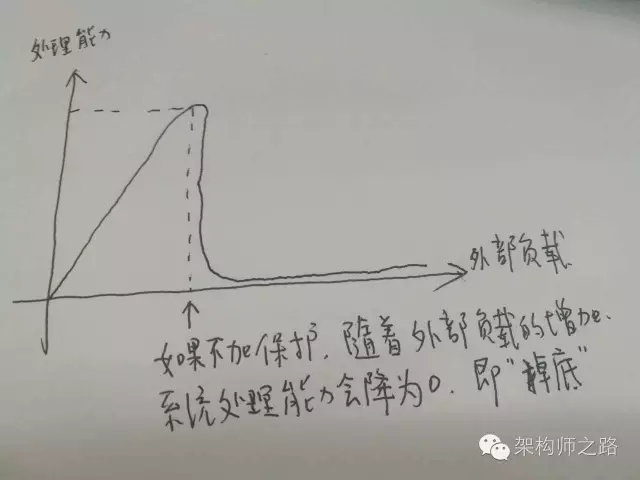 处理能力
外部负载
如果不加保护,随着外部负载的增加.
系统处理能力会降为0. 即"掉底"
架构师之路